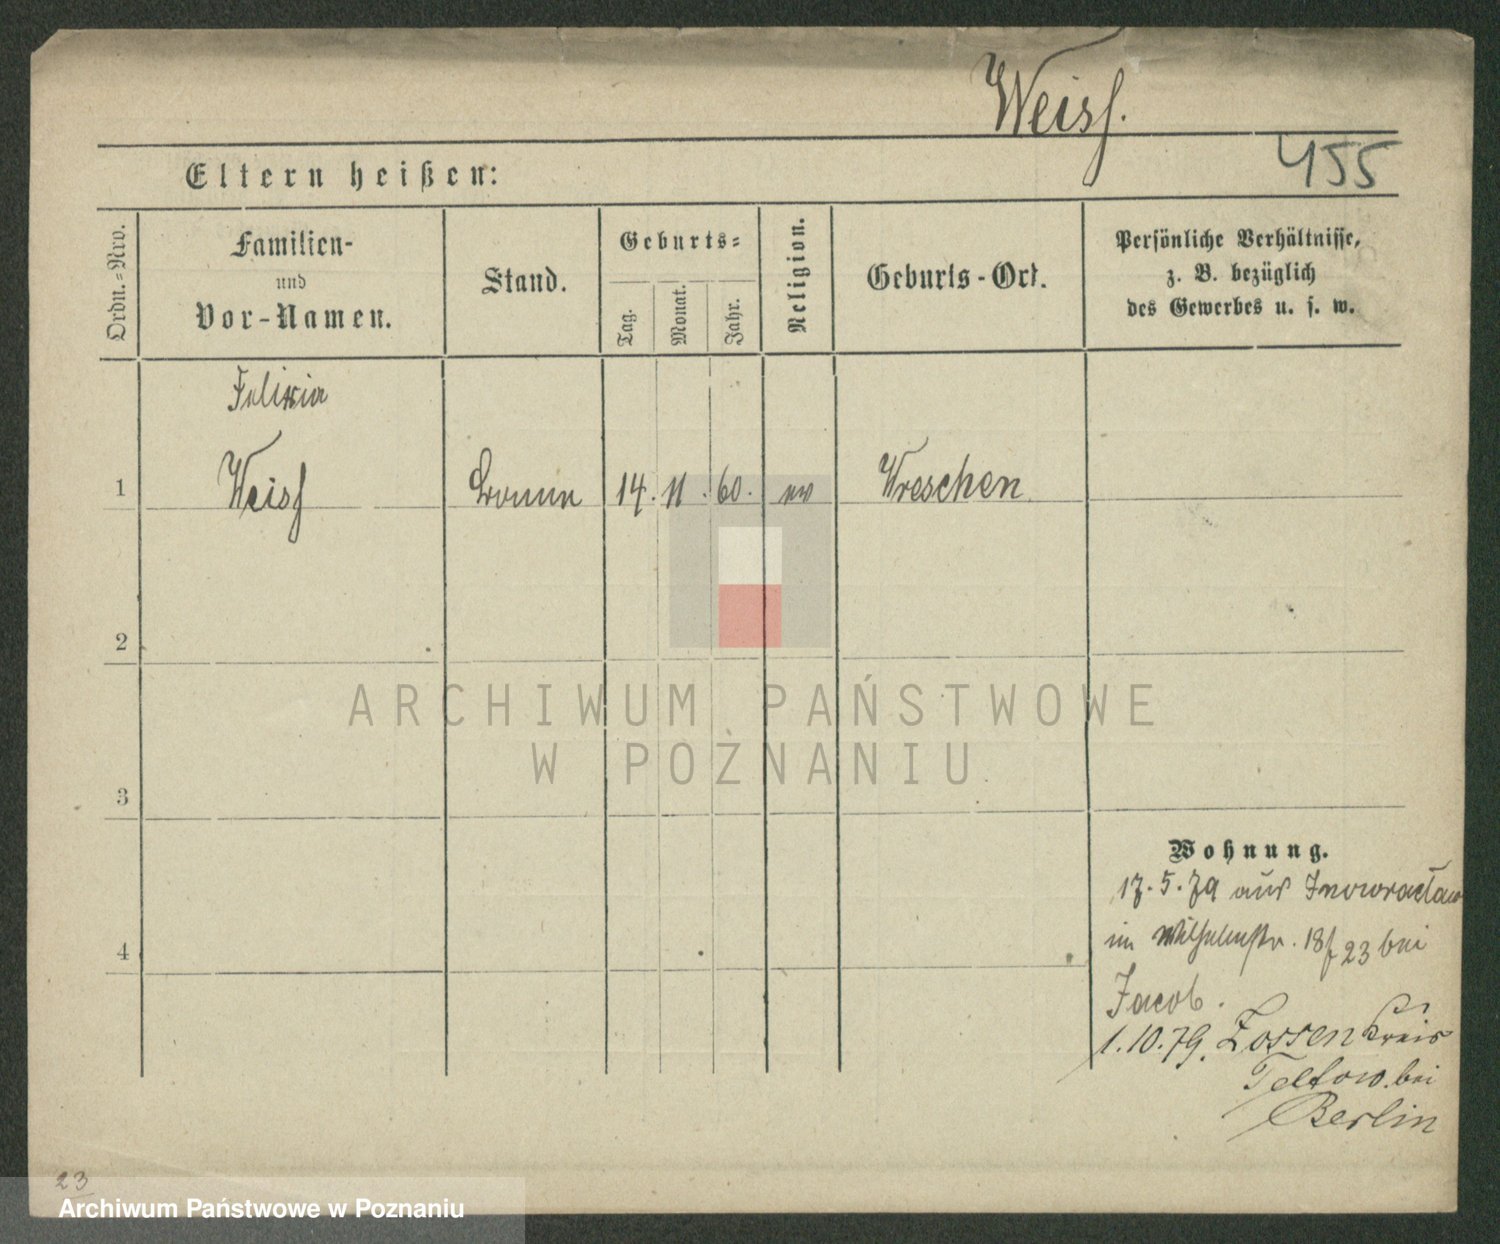 Weiß.
455
Eltern heißen:
Ordn.-Nro.
Familien-
und
Vor-Namen.
Stand.
Geburts-
Tag.
Monat.
Jahr.
Religion.
Geburts-Ort.
Persönliche Verhältnisse,
z. B. bezüglich
des Gewerbes u. s. w.
Felixia
1 Weiß Bonne 14. 11. 60. ev Wreschen
2
ARCHIWUM PAŃSTWOWE
W POZNANIU
3
Wohnung.
17.5.79 aus Inowraclaw
im Wilhelmstr. 18/23 bei
4
Jacob.
1.10.79. Zossen Kreis
Teltow bei
Berlin
23
Archiwum Państwowe w Poznaniu